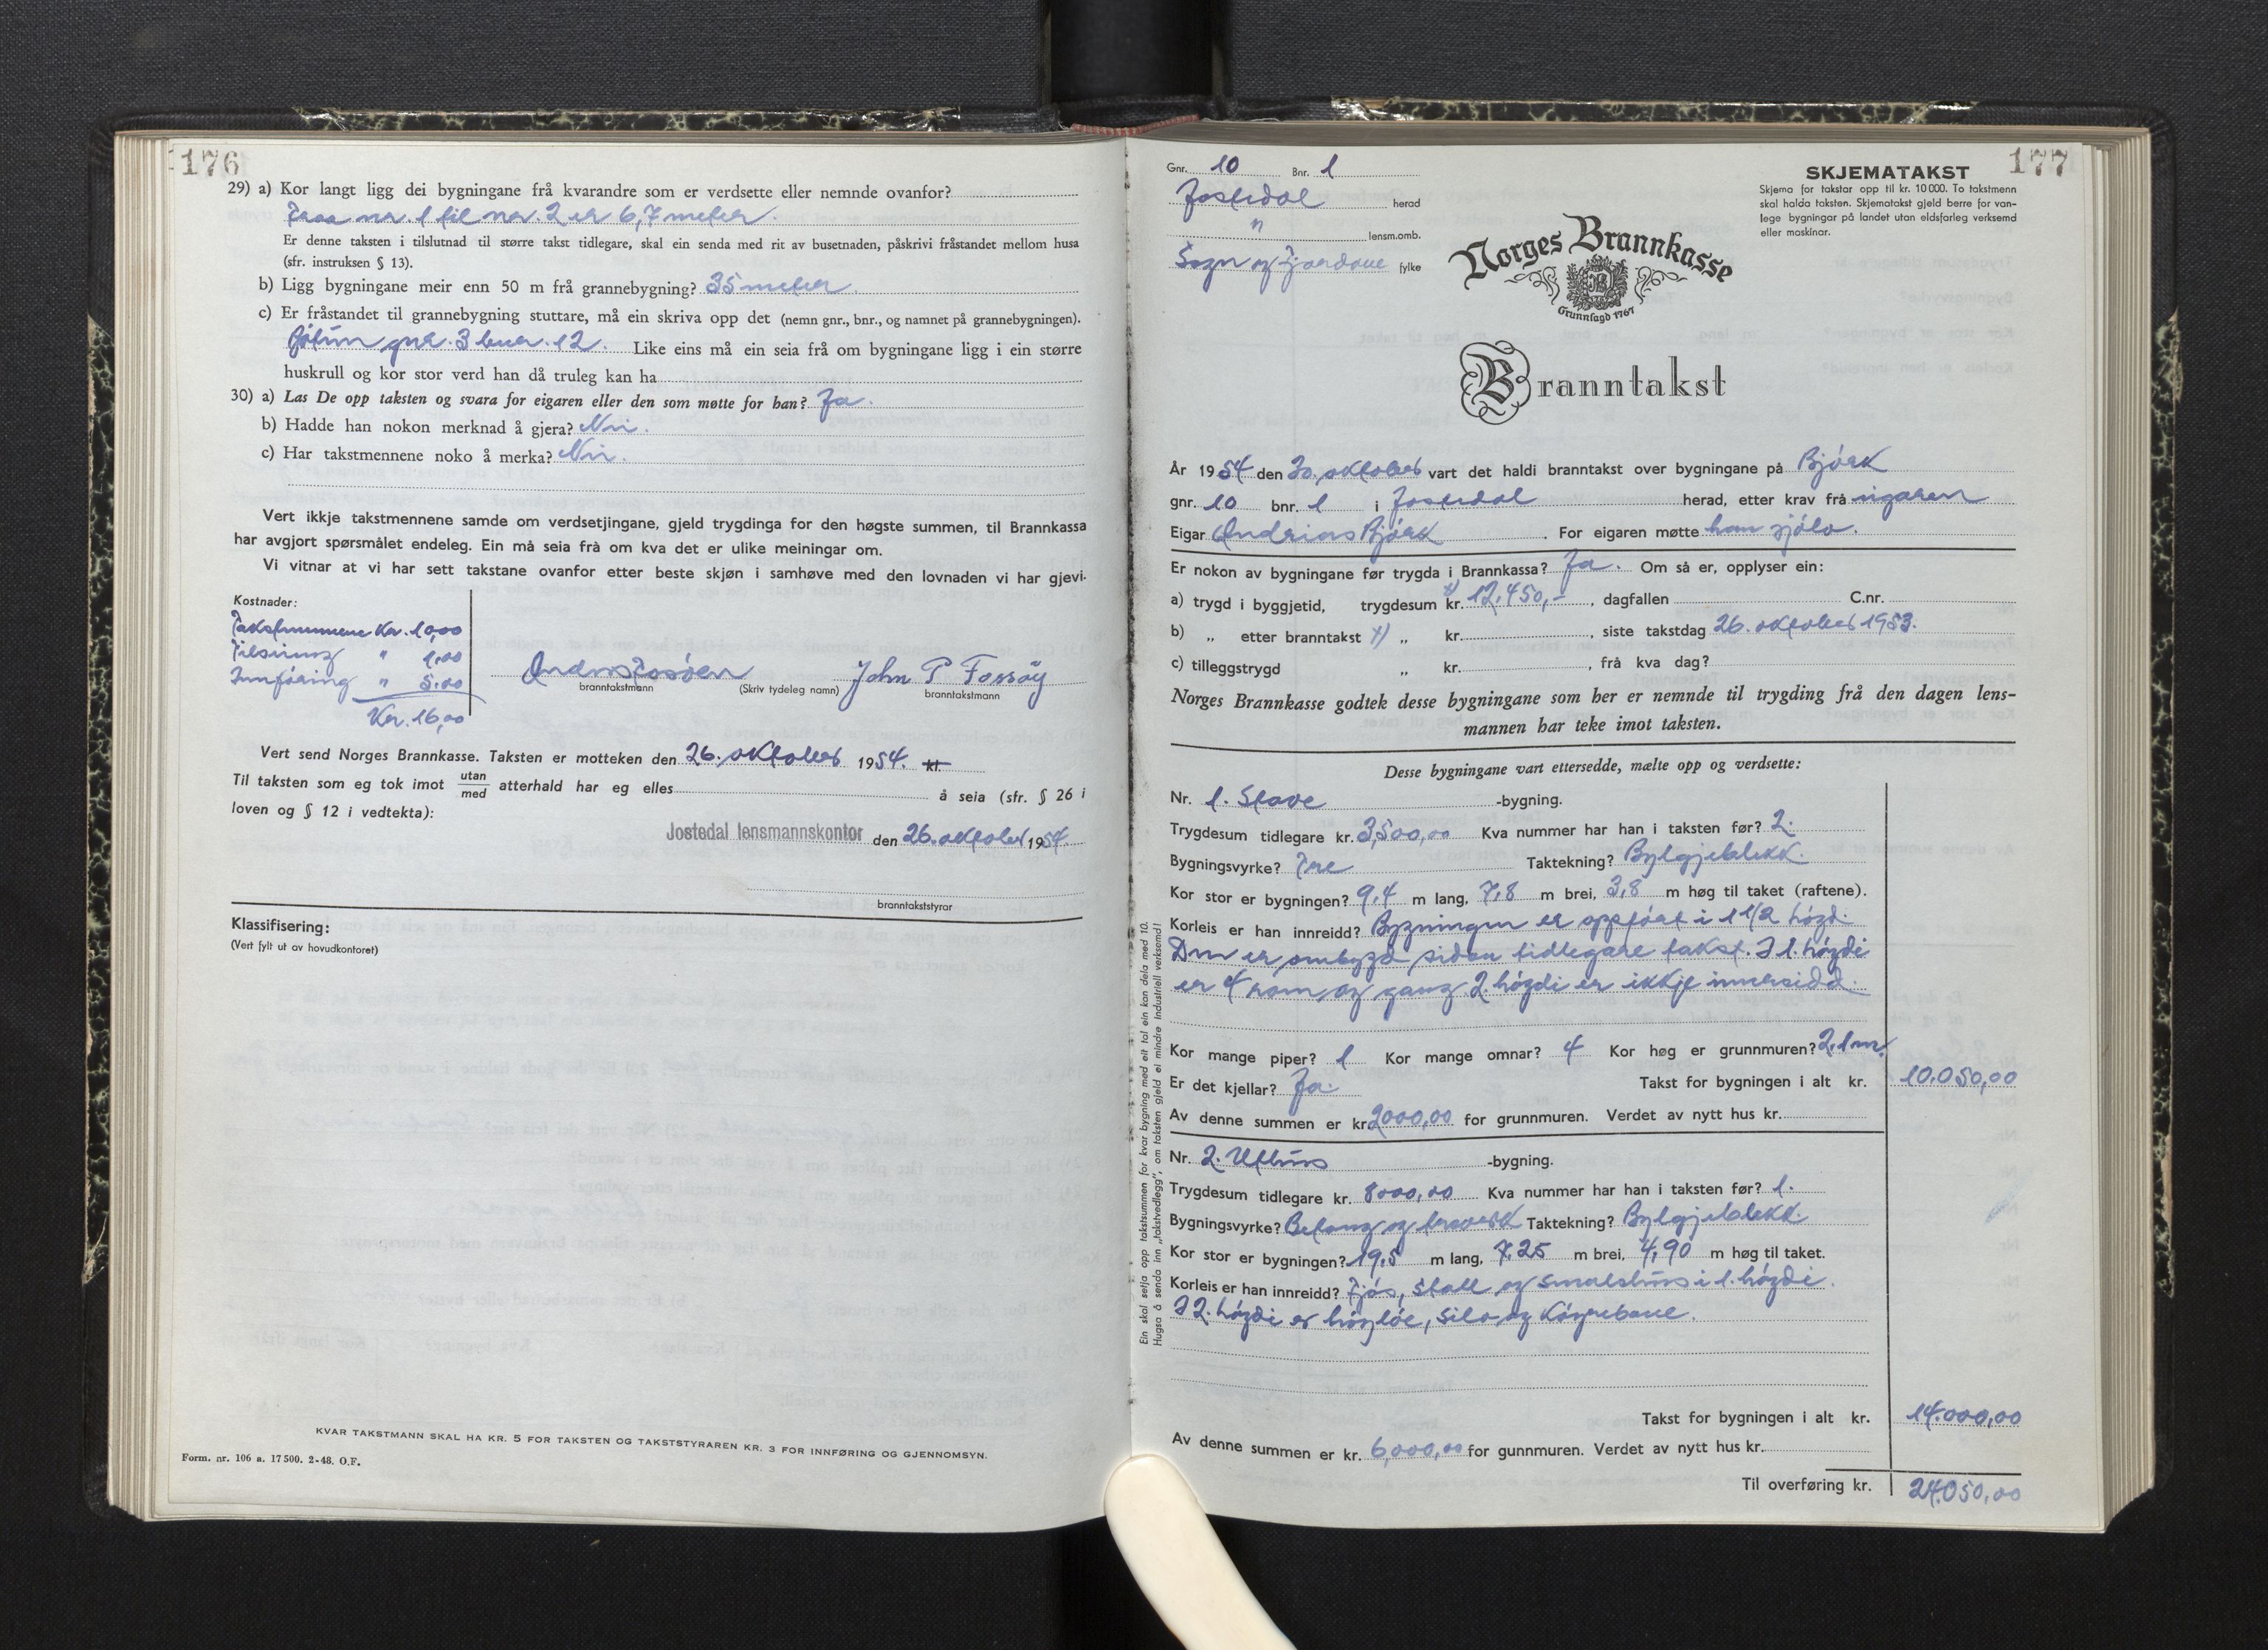 176
29) a) Kor langt ligg dei bygningane frå kvarandre som er verdsette eller nemnde ovanfor?
Fraa nr. 1 til nr. 2 er 6,7 meter.
Er denne taksten i tilslutnad til større takst tidlegare, skal ein senda med rit av busetnaden, påskrivi fråstandet mellom husa
(sfr. instruksen § 13).
b) Ligg bygningane meir enn 50 m frå grannebygning? 35 meter.
c) Er fråstandet til grannebygning stuttare, må ein skriva opp det (nemn gnr., bnr., og namnet på grannebygningen).
gnr. 3 bnr. 12. Like eins må ein seia frå om bygningane ligg i ein større
huskrull og kor stor verd han då truleg kan ha
30) a) Las De opp taksten og svara for eigaren eller den som møtte for han? Ja.
b) Hadde han nokon merknad å gjera? Nei.
c) Har takstmennene noko å merka? Nei.
Vert ikkje takstmennene samde om verdsetjingane, gjeld trygdinga for den høgste summen, til Brannkassa
har avgjort spørsmålet endeleg. Ein må seia frå om kva det er ulike meiningar om.
Vi vitnar at vi har sett takstane ovanfor etter beste skjøn i samhøve med den lovnaden vi har gjevi.
Kostnader:
Takstmennene Kr. 10,00
Tilsining " 1,00
Innføring " 5.00
Kr. 16,00
John P Fossøy
branntakstmann (Skriv tydeleg namn) branntakstmann
Vert send Norges Brannkasse. Taksten er motteken den 26. oktober 1954. kl.
Til taksten som eg tok imot utan/med atterhald har eg elles å seia (sfr. § 26 i
loven og § 12 i vedtekta):
Jostedal lensmannskontor den 26. oktober 1954.
branntakststyrar
Klassifisering:
(Vert fylt ut av hovudkontoret)
KVAR TAKSTMANN SKAL HA KR. 5 FOR TAKSTEN OG TAKSTSTYRAREN KR. 3 FOR INNFØRING OG GJENNOMSYN.
Form. nr. 106 a. 17 500. 2-48. O.F.
177
Gnr. 10 Bnr. 1
Jostedal herad
" lensm.omb.
Sogn og Fjordane fylke
SKJEMATAKST
Skjema for takstar opp til kr. 10 000. To takstmenn
skal halda taksten. Skjematakst gjeld berre for van-
lege bygningar på landet utan eldsfarleg verksemd
eller maskinar.
Norges Brannkasse
Grunnlagd 1767
Branntakst
År 1954 den 20. oktober vart det haldi branntakst over bygningane på Bjørk
gnr. 10 bnr. 1 i Jostedal herad, etter krav frå eigaren
Eigar Andrias Bjørk. For eigaren møtte han sjølv.
Er nokon av bygningane før trygda i Brannkassa? Ja. Om så er, opplyser ein:
a) trygd i byggjetid, trygdesum kr. x) 12.450,-, dagfallen C.nr.
b) „ etter branntakst x) „ kr. , siste takstdag 26. oktober 1953.
c) tilleggstrygd „ kr. , frå kva dag?
Norges Brannkasse godtek desse bygningane som her er nemnde til trygding frå den dagen lens-
mannen har teke imot taksten.
Desse bygningane vart ettersedde, mælte opp og verdsette:
Nr. 1. Stove -bygning.
Trygdesum tidlegare kr. 3,500,00 Kva nummer har han i taksten før? 2.
Bygningsvyrke? Tre Taktekning? Bylgjeblekk.
Kor stor er bygningen? 9,4 m lang, 7,8 m brei, 3,8 m høg til taket (raftene).
Korleis er han innreidd? Bygningen er oppført i 1 1/2 høgd.
Den er ombygd sidan tidlegare takst. I 1. høgdi
er 4 rom og gang 2. høgdi er ikkje innreidd.
Kor mange piper? 1 Kor mange omnar? 4 Kor høg er grunnmuren? 2,1 m.
Er det kjellar? Ja. Takst for bygningen i alt kr. 10.050,00
Av denne summen er kr. 2000,00 for grunnmuren. Verdet av nytt hus kr.
Nr. 2. Uthus -bygning.
Trygdesum tidlegare kr. 8000,00 Kva nummer har han i taksten før? 1.
Bygningsvyrke? Betong og treverk Taktekning? Bylgjeblekk.
Kor stor er bygningen? 19,5 m lang, 7,25 m brei, 4,90 m høg til taket.
Korleis er han innreidd? Fjøs, stall og smalehus i 1. høgdi.
I 2. høgdi er høyløe, silo og køyrebane.
Takst for bygningen i alt kr. 14.000,00
Av denne summen er kr. 6,000,00 for gunnmuren. Verdet av nytt hus kr.
Til overføring kr. 24.050,00
Ein skal setja opp takstsummen for kvar bygning med eit tal ein kan dela med 10.
Hugsa å senda inn „takstvedlegg", om taksten gjeld ei mindre industriell verksemd!